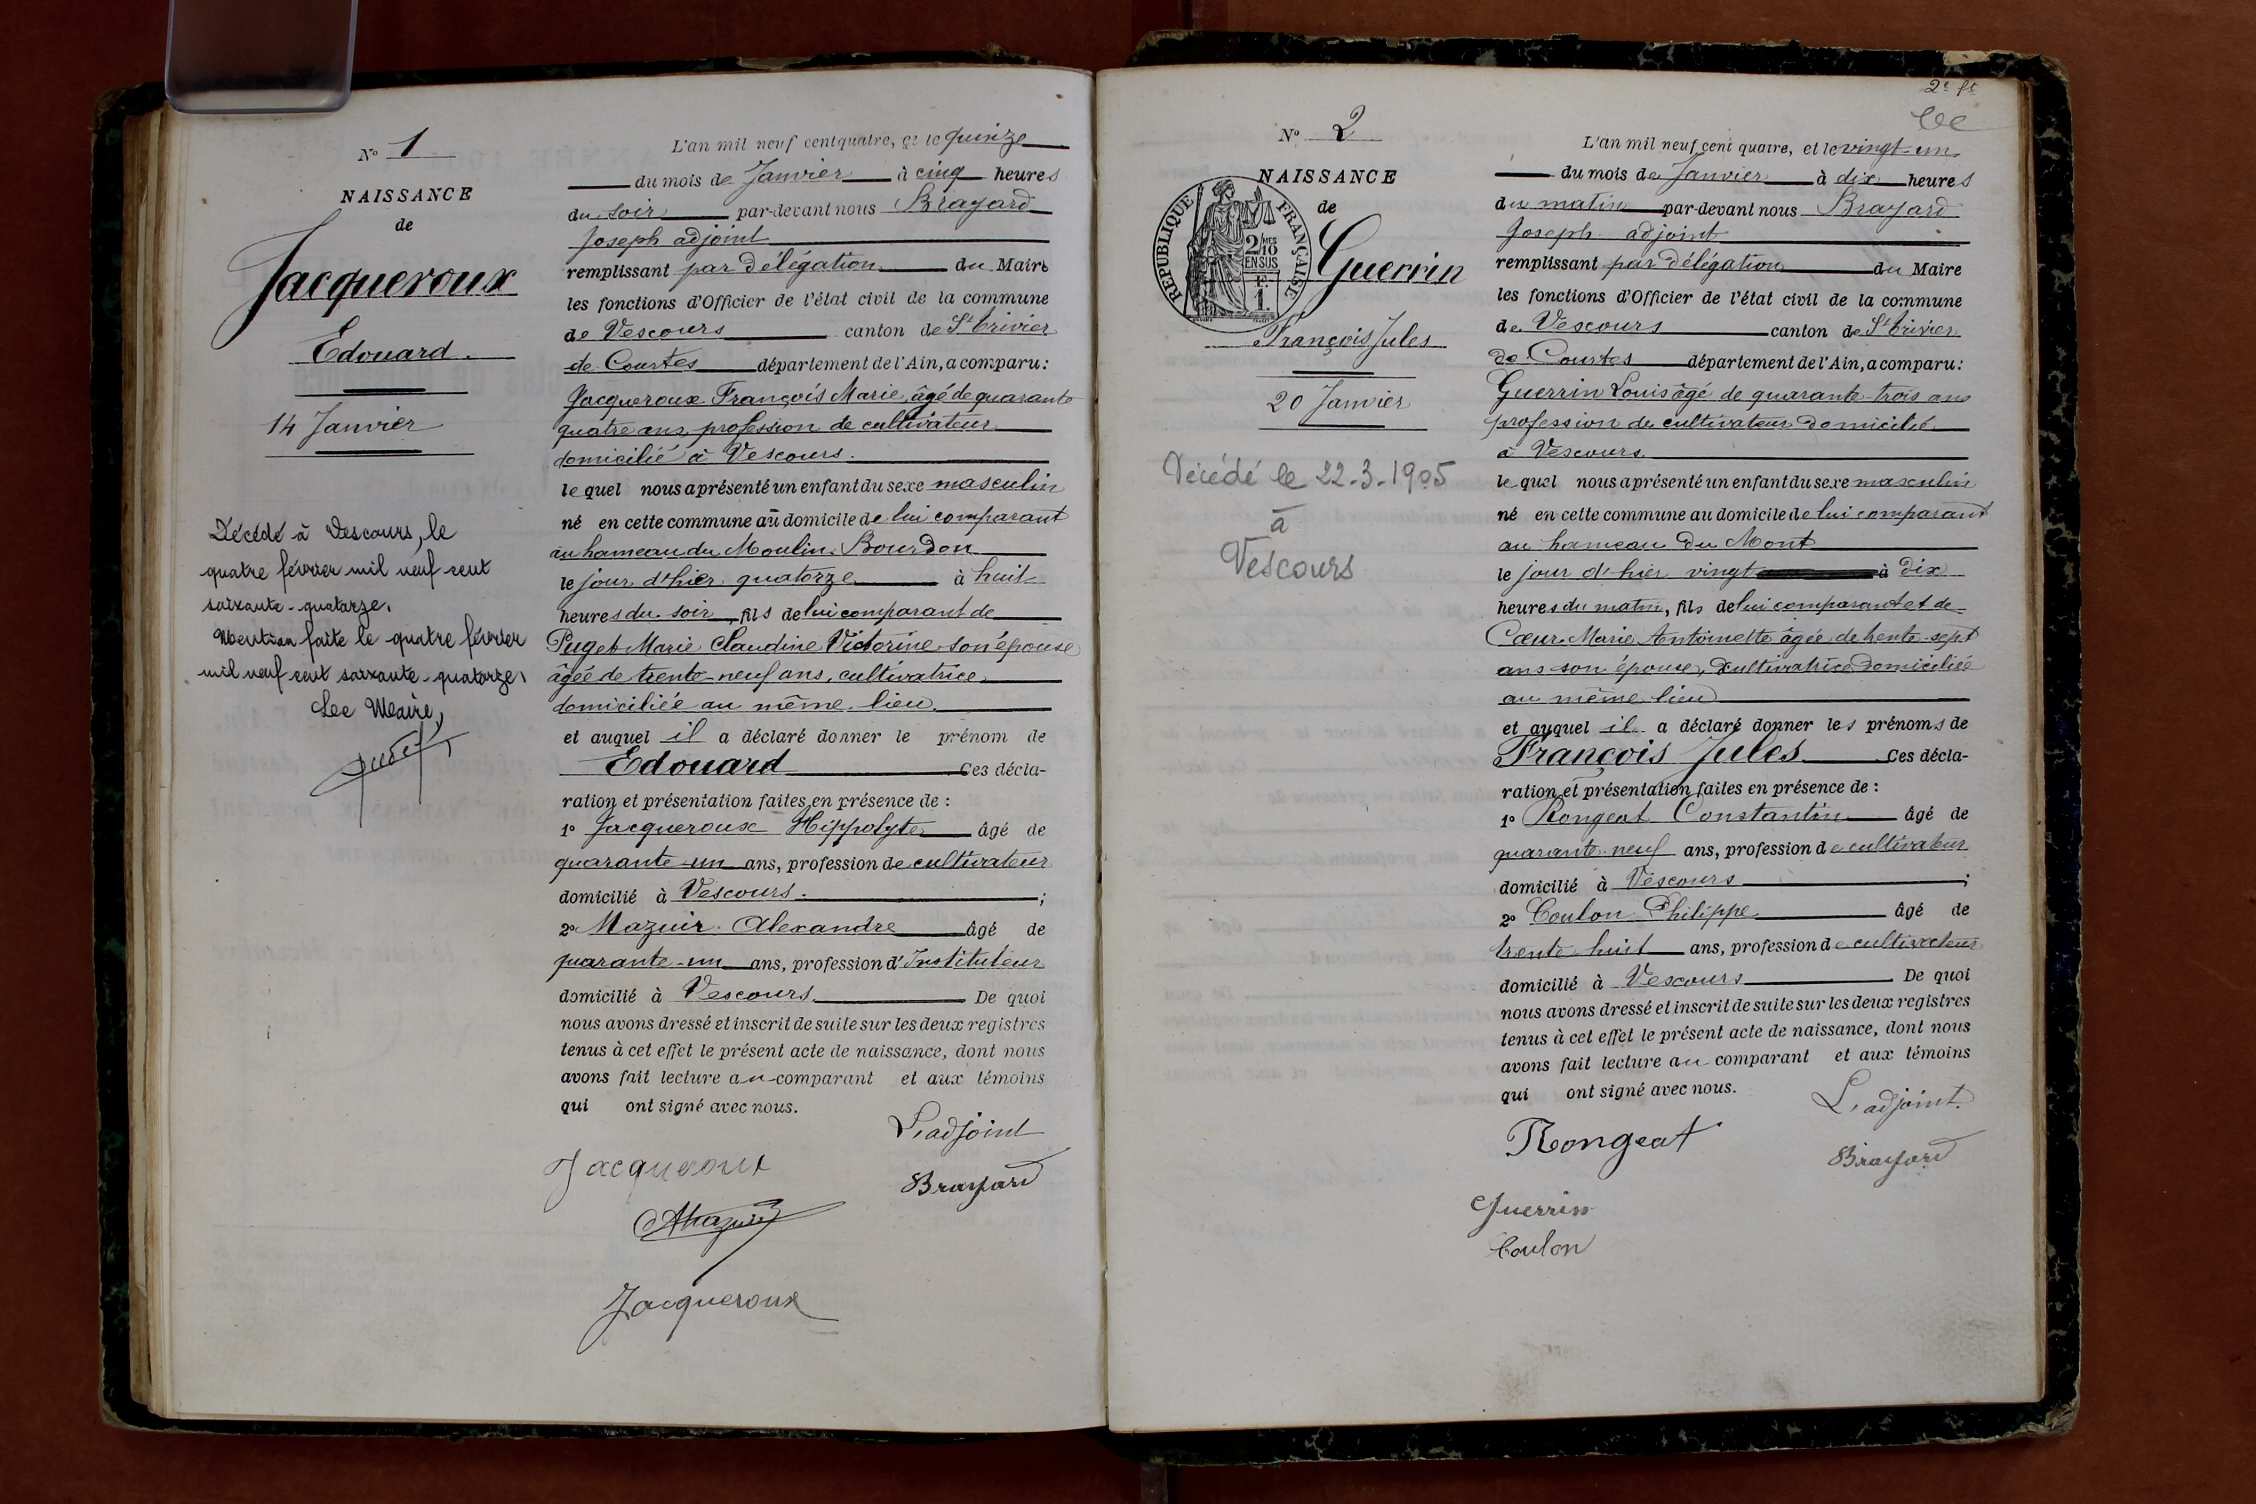 N° 1
NAISSANCE
de
Jacqueroux
Edouard.
14 Janvier
Décédé à Vescours, le
quatre février mil neuf cent
soixante-quatorze.
Mention faite le quatre février
mil neuf cent soixante-quatorze,
Le Maire,
L'an mil neuf cent quatre, et le quinze
du mois de Janvier à cinq heures
du soir par-devant nous Brayard
Joseph adjoint
remplissant par délégation du Maire
les fonctions d'Officier de l'état civil de la commune
de Vescours canton de St Trivier
de Courtes département de l'Ain, a comparu:
Jacqueroux François Marie, âgé de quarante
quatre ans, profession de cultivateur
domicilié à Vescours.
le quel nous a présenté un enfant du sexe masculin
né en cette commune au domicile de lui comparant
au hameau du Moulin Bourdon
le jour d'hier quatorze à huit
heures du soir, fils de lui comparant de
Puget Marie Claudine Victorine son épouse
âgée de trente-neuf ans, cultivatrice,
domiciliée au même lieu.
et auquel il a déclaré donner le prénom de
Edouard Ces décla-
ration et présentation faites en présence de :
1° Jacqueroux Hippolyte âgé de
quarante-un ans, profession de cultivateur
domicilié à Vescours. ;
2° Mazuir Alexandre âgé de
quarante-un ans, profession d'Instituteur
domicilié à Vescours De quoi
nous avons dressé et inscrit de suite sur les deux registres
tenus à cet effet le présent acte de naissance, dont nous
avons fait lecture au comparant et aux témoins
qui ont signé avec nous.
L'adjoint
Jacqueroux
Brayard
AMazuir
Jacqueroux
2e ft
N° 2
NAISSANCE
de
RÉPUBLIQUE FRANÇAISE
2/10 MES
EN SUS
1 F.
Guerrin
François Jules
20 Janvier
Décédé le 22-3-1905
à
Vescours
L'an mil neuf cent quatre, et le vingt-un
du mois de Janvier à dix heures
du matin par-devant nous Brayard
Joseph adjoint
remplissant par délégation du Maire
les fonctions d'Officier de l'état civil de la commune
de Vescours canton de St Trivier
de Courtes département de l'Ain, a comparu:
Guerrin Louis âgé de quarante-trois ans
profession de cultivateur domicilié
à Vescours
le quel nous a présenté un enfant du sexe masculin
né en cette commune au domicile de lui comparant
au hameau du Mont
le jour d'hier vingt à dix
heures du matin, fils de lui comparant et de
Cœur Marie Antoinette âgée de trente-sept
ans son épouse, cultivatrice domiciliée
au même lieu
et auquel il a déclaré donner les prénoms de
François Jules Ces décla-
ration et présentation faites en présence de :
1° Rongeat Constantin âgé de
quarante-neuf ans, profession de cultivateur
domicilié à Vescours ;
2° Coulon Philippe âgé de
trente-huit ans, profession de cultivateur
domicilié à Vescours De quoi
nous avons dressé et inscrit de suite sur les deux registres
tenus à cet effet le présent acte de naissance, dont nous
avons fait lecture au comparant et aux témoins
qui ont signé avec nous.
L'adjoint.
Rongeat
Brayard
Guerrin
Coulon